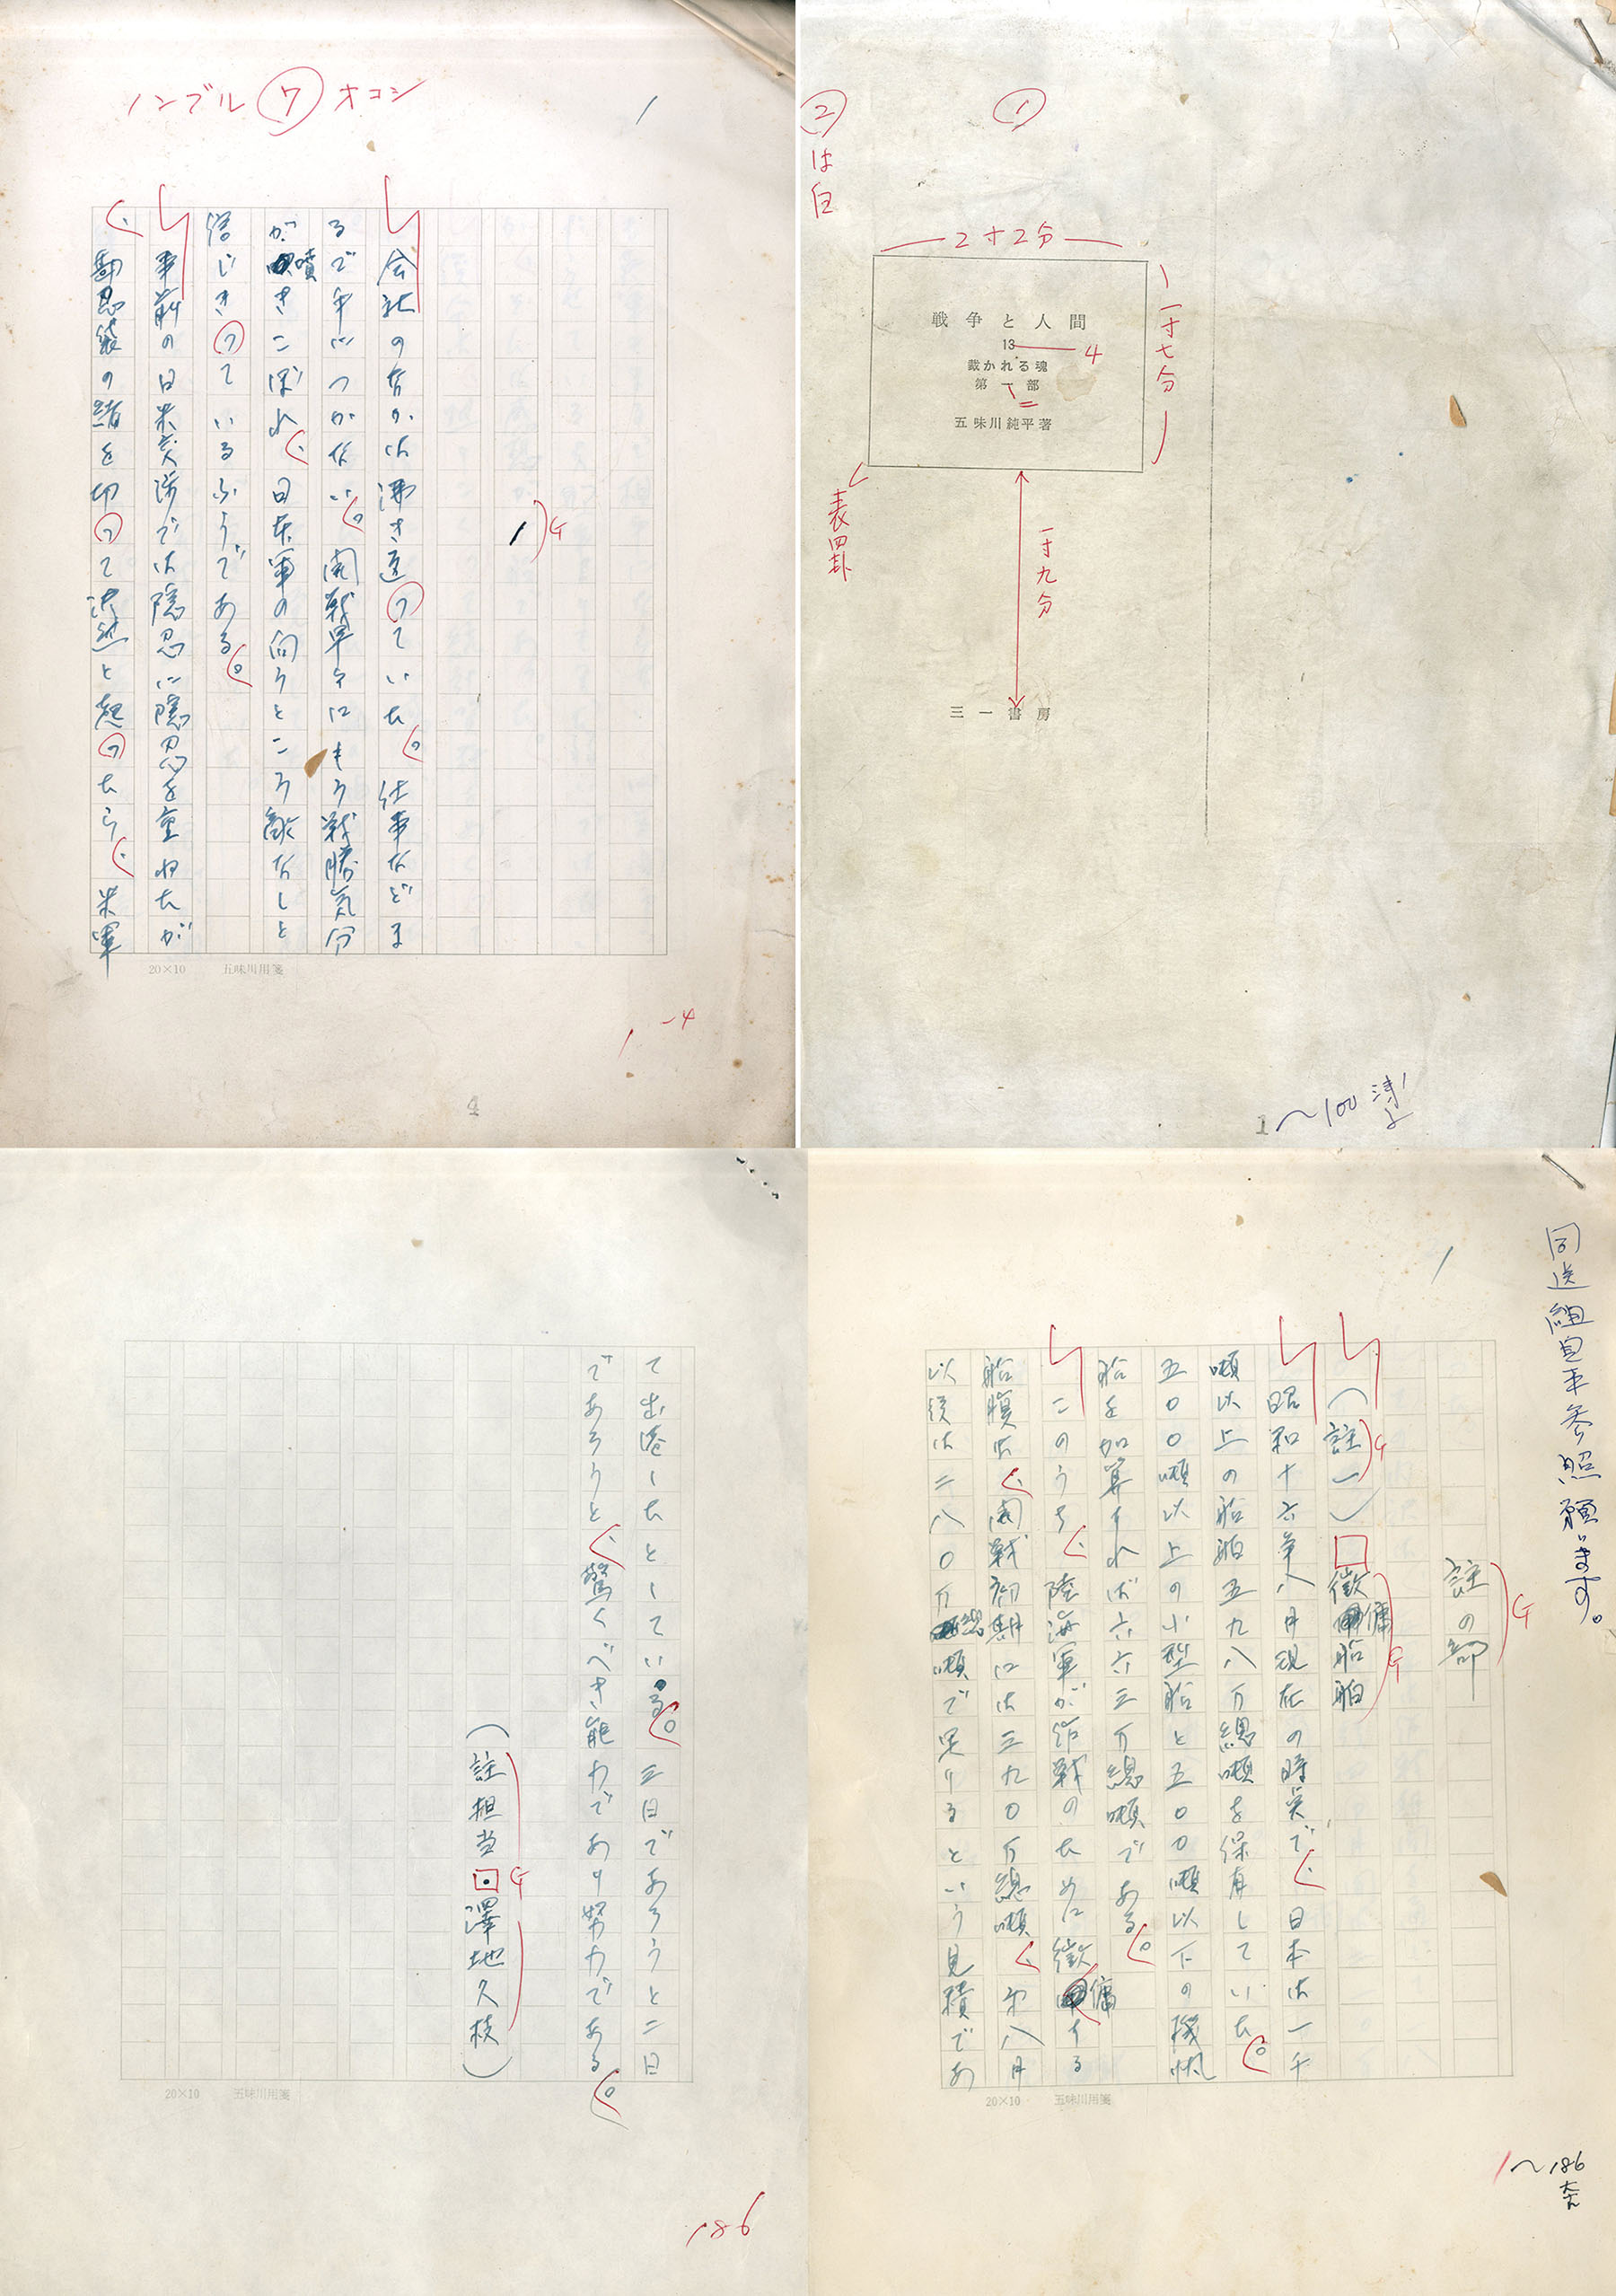 ノンブル⑦オコシ
1
1
G
会社のなかは沸き返っていた。仕事などま
るで手につかない。開戦早々にもう戦勝気分
が噴きこぼれ、日本軍の向うところ敵なしと
信じきっているふうである。
事前の日米交渉では隠忍に隠忍を重ねたが
、勘忍袋の緒を切って決然と起ったら、米軍
20×10 五味川用箋
1-4
4
①
②は白
2寸2分
戦争と人間
13 4
裁かれる魂
第一部
二
五味川純平著
一寸七分
表罫
一寸九分
三一書房
1〜100
同送組見本参照願います。
1
註の部
G
(註一)□徴傭船舶
G
G
昭和十六年八月現在の時点で、日本は一千
噸以上の船舶五九八万総噸を保有していた。
五〇〇噸以上の小型船と五〇〇噸以下の機帆
船を加算すれば六六三万総噸である。
このうち、陸海軍が作戦のために徴傭する
船腹は、開戦初期には三九〇万総噸、第八月
以後は二八〇万総噸で足りるという見積であ
20×10 五味川用箋
1〜186
て出港したとしている。三日であろうと二日
であろうと、驚くべき能力であり努力である。
(註担当・澤地久枝)
G
20×10 五味川用箋
186